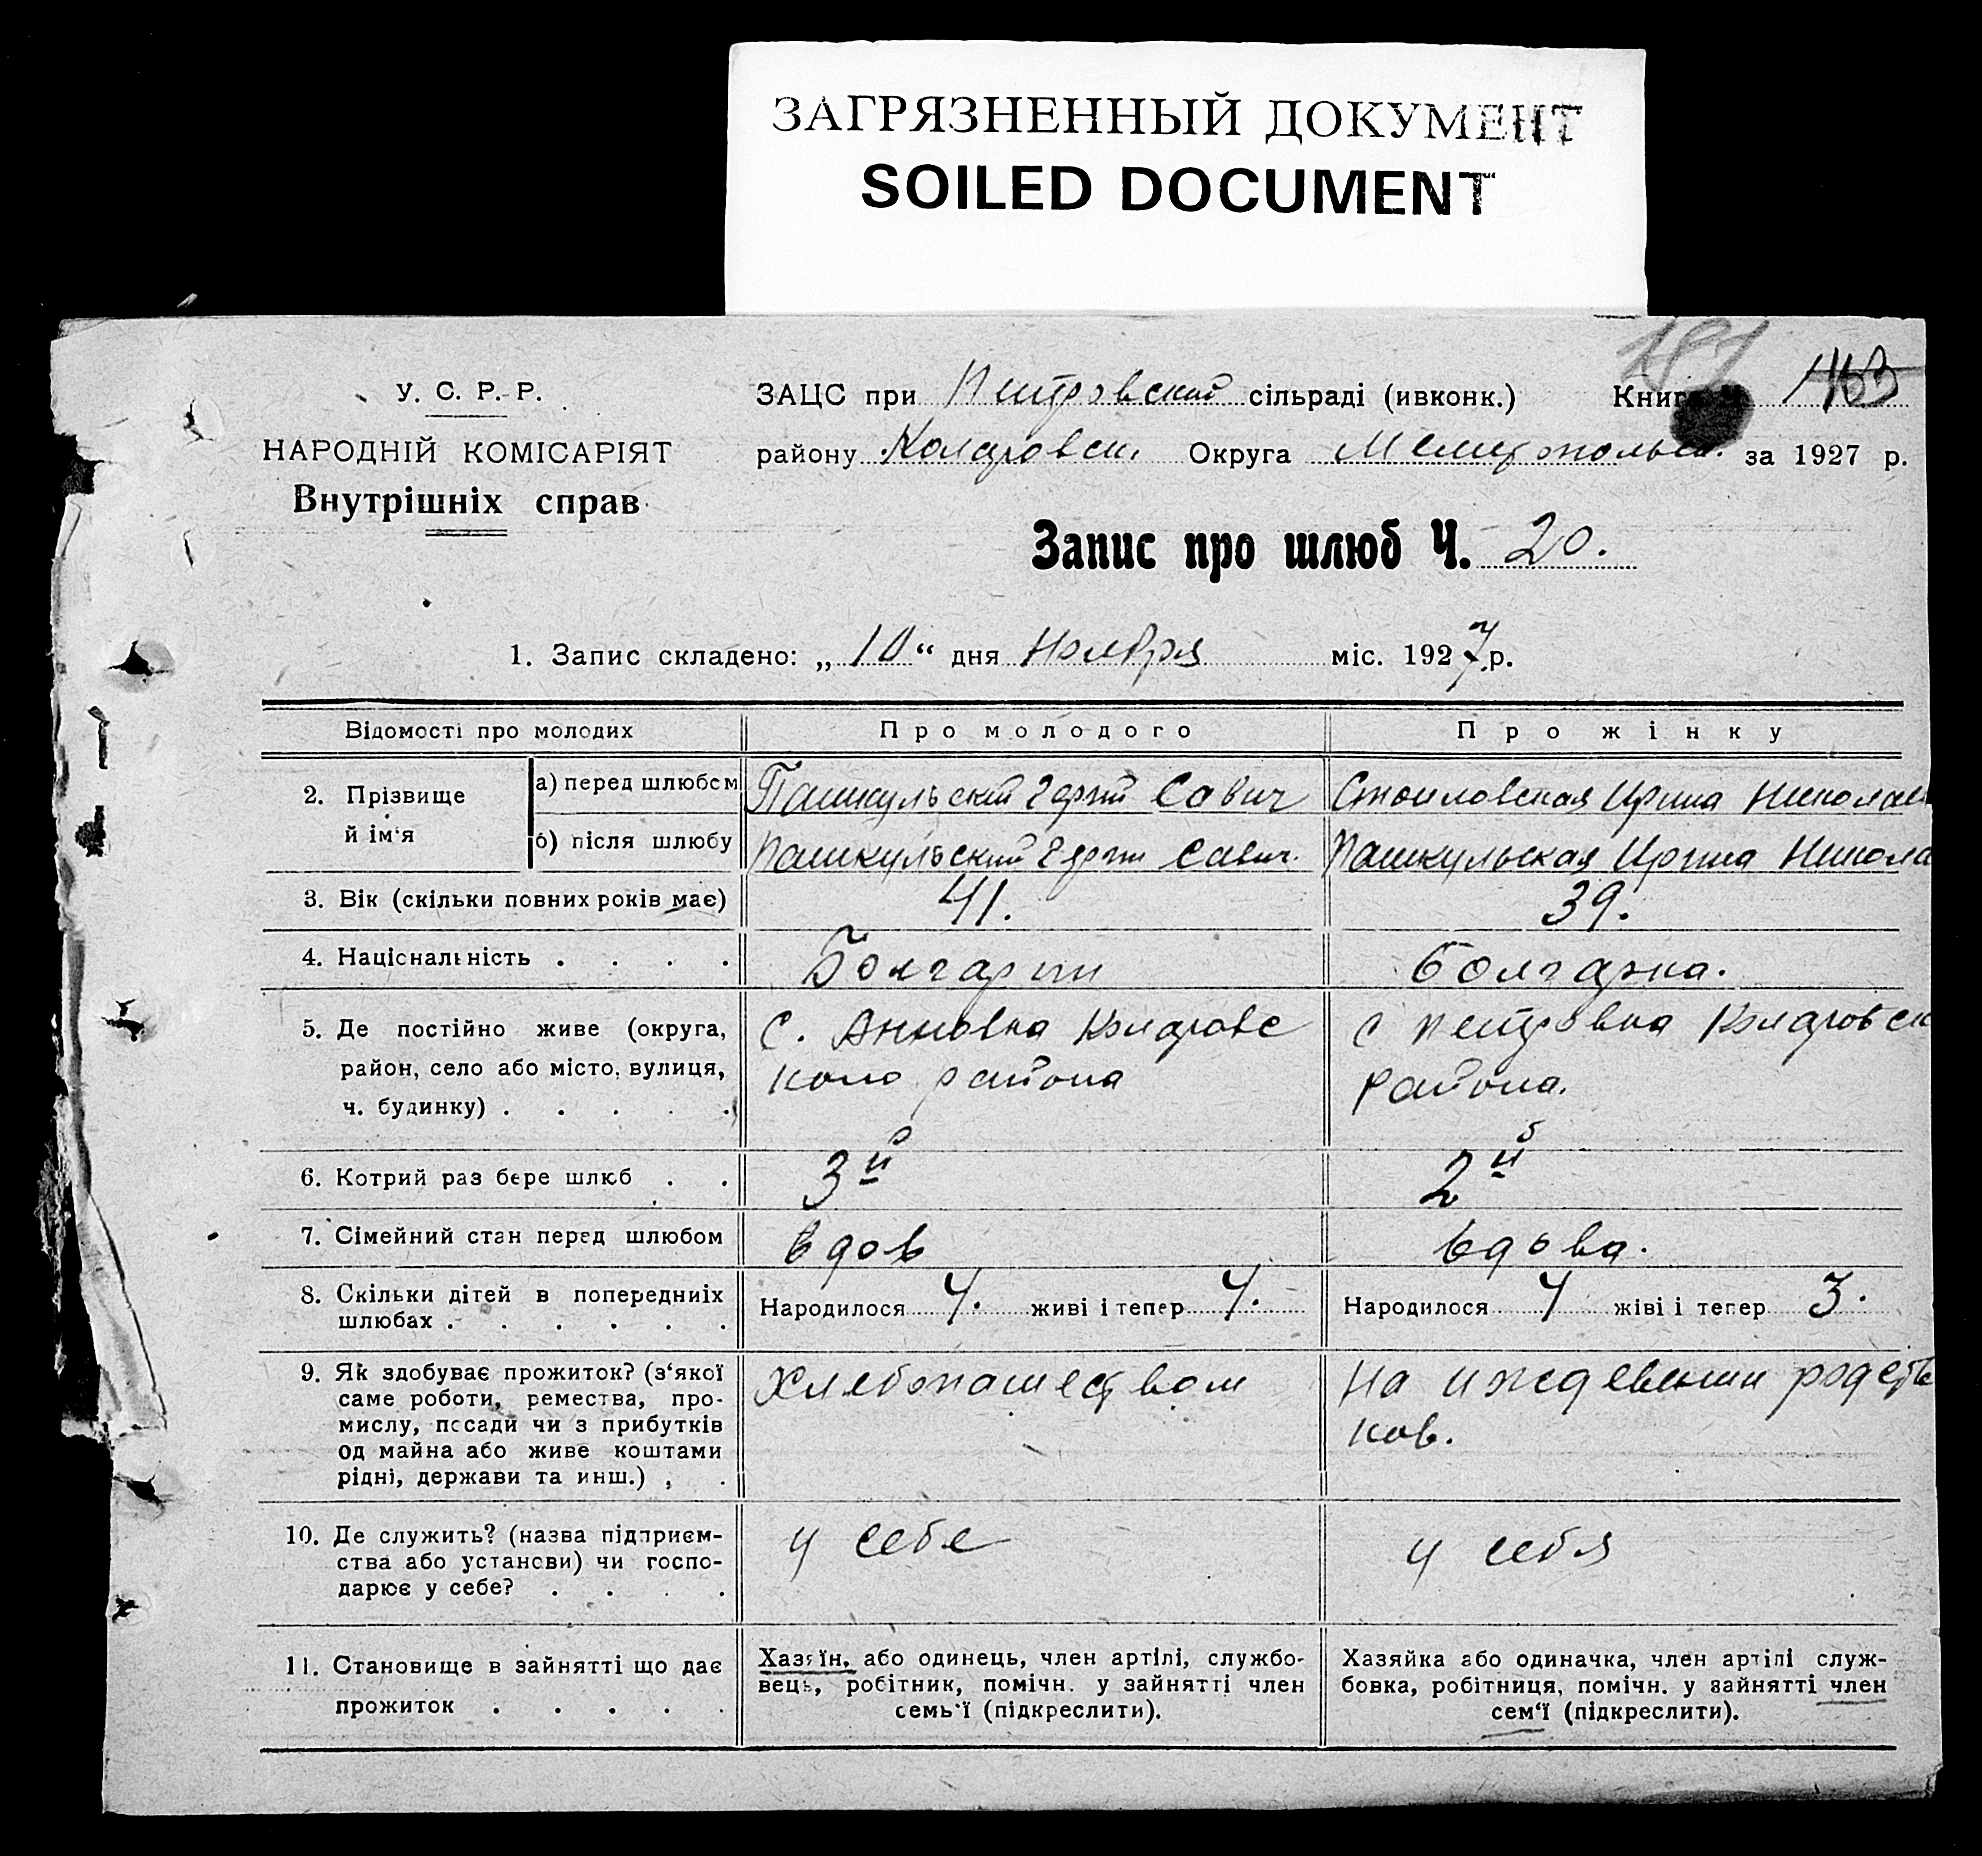 ЗАГРЯЗНЕННЫЙ ДОКУМЕНТ
SOILED DOCUMENT
187 163
У. С. Р. Р.
НАРОДНІЙ КОМІСАРІЯТ
Внутрішніх справ
ЗАЦС при Петровский сільраді (ивконк.) Книга
району Коларовск. Округа Мелитопольск. за 1927 р.
Запис про шлюб Ч. 20.
1. Запис складено: „10“ дня Ноября міс. 1927 р.
Відомості про молодих Про молодого Про жінку
2. Прізвище й ім‘я
а) перед шлюбом Пашкульский Георгий Савич Стоиловская Ирина Николае
б) після шлюбу Пашкульский Георги Савич. Пашкульская Ирина Никола
3. Вік (скільки повних років має) 41. 39.
4. Національність . . . . Болгарин Болгарка.
5. Де постійно живе (округа, С. Анновка Коларовс с Петровка Коларовск
район, село або місто, вулиця, кого района района.
ч. будинку) . . . . .
6. Котрий раз бере шлюб . . 3й 2й
7. Сімейний стан перед шлюбом вдов вдова.
8. Скільки дітей в попередниіх Народилося 4. живі і тепер 4. Народилося 4 жіві і тепер 3.
шлюбах . . . . . .
9. Як здобуває прожиток? (з‘якої Хлебопашеством На иждевении родств
саме роботи, ремества, про- ков.
мислу, посади чи з прибутків
од майна або живе коштами
рідні, держави та инш.) , .
10. Де служить? (назва підприєм- у себе у себя
ства або установи) чи госпо-
дарює у себе? . . . .
11. Становище в зайнятті що дає
прожиток . . . . .
Хазяїн, або одинець, член артілі, службо-
вець, робітник, помічн. у зайнятті член
семь‘ї (підкреслити).
Хазяйка або одиначка, член артілі служ-
бовка, робітниця, помічн. у зайнятті член
сем‘ї (підкреслити).